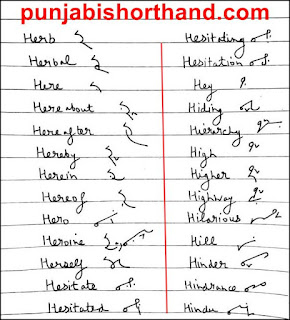 punjabishorthand.com
Herb
Herbal
Here
Here about
Here after
Hereby
Herein
Hereof
Hero
Heroine
Herself
Hesitate
Hesitated
Hesitating
Hesitation
Hey
Hiding
Hierarchy
High
Higher
Highway
Hilarious
Hill
Hinder
Hindrance
Hindu